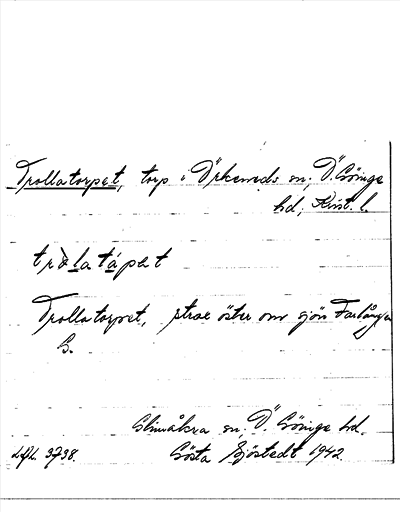 Trollatorpet, torp i Örkeneds sn; Ö. Göinge
hd; Krist. l.
tròlatápet
Trollatorpet, strax öster om sjön Farlången
G.
Glimåkra sn, Ö Göinge hd.
Lyfl. 3738. Gösta Sjöstedt 1942.